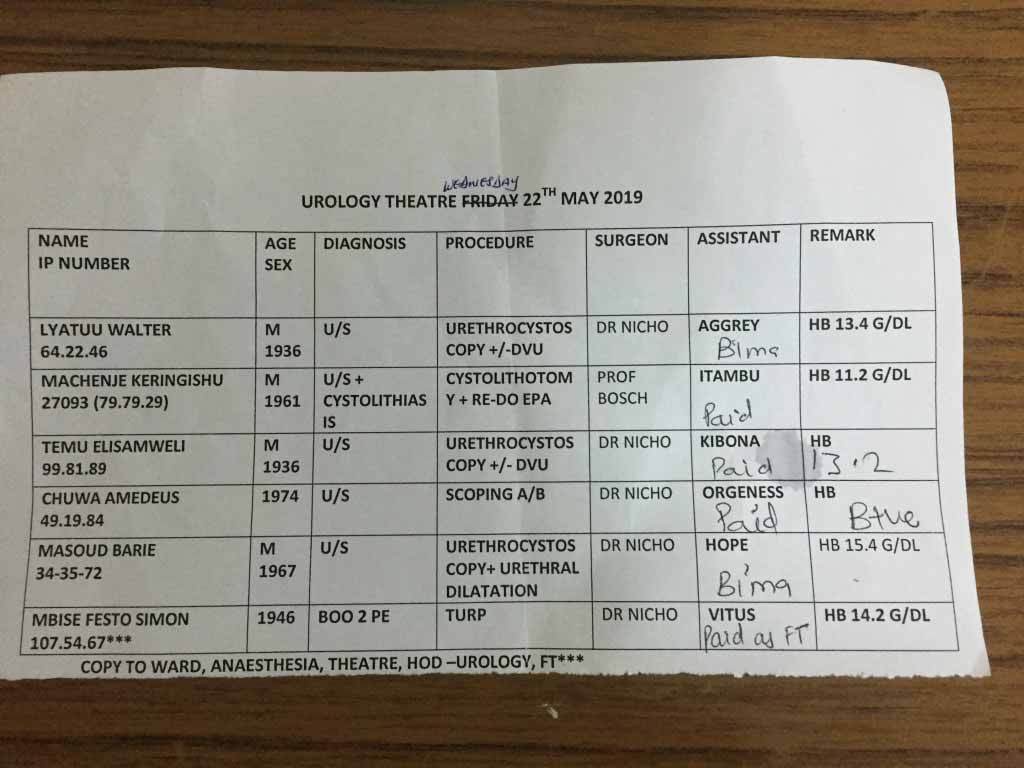 WEDNESDAY
UROLOGY THEATRE FRIDAY 22TH MAY 2019
NAME AGE DIAGNOSIS PROCEDURE SURGEON ASSISTANT REMARK
IP NUMBER SEX
LYATUU WALTER M U/S URETHROCYSTOS DR NICHO AGGREY HB 13.4 G/DL
64.22.46 1936 COPY +/-DVU Bima
MACHENJE KERINGISHU M U/S + CYSTOLITHOTOM PROF ITAMBU HB 11.2 G/DL
27093 (79.79.29) 1961 CYSTOLITHIAS Y + RE-DO EPA BOSCH Paid
IS
TEMU ELISAMWELI M U/S URETHROCYSTOS DR NICHO KIBONA HB
99.81.89 1936 COPY +/- DVU Paid 13.2
CHUWA AMEDEUS 1974 U/S SCOPING A/B DR NICHO ORGENESS HB
49.19.84 Paid B+ve
MASOUD BARIE M U/S URETHROCYSTOS DR NICHO HOPE HB 15.4 G/DL
34-35-72 1967 COPY+ URETHRAL Bima
DILATATION
MBISE FESTO SIMON 1946 BOO 2 PE TURP DR NICHO VITUS HB 14.2 G/DL
107.54.67*** Paid as FT
COPY TO WARD, ANAESTHESIA, THEATRE, HOD –UROLOGY, FT***